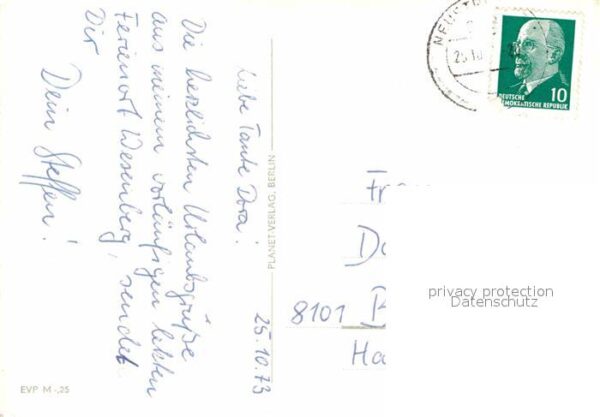 Liebe Tante Dora!
25.10.73
Die herzlichsten Urlaubsgrüße
aus meinem vorläufigen letzten
Ferienort Wesenberg, sendet
Dir
Dein Steffen!
PLANET-VERLAG, BERLIN
EVP M -,25
NEUST
25.10
10
DEUTSCHE
DEMOKRATISCHE REPUBLIK
8101
privacy protection
Datenschutz